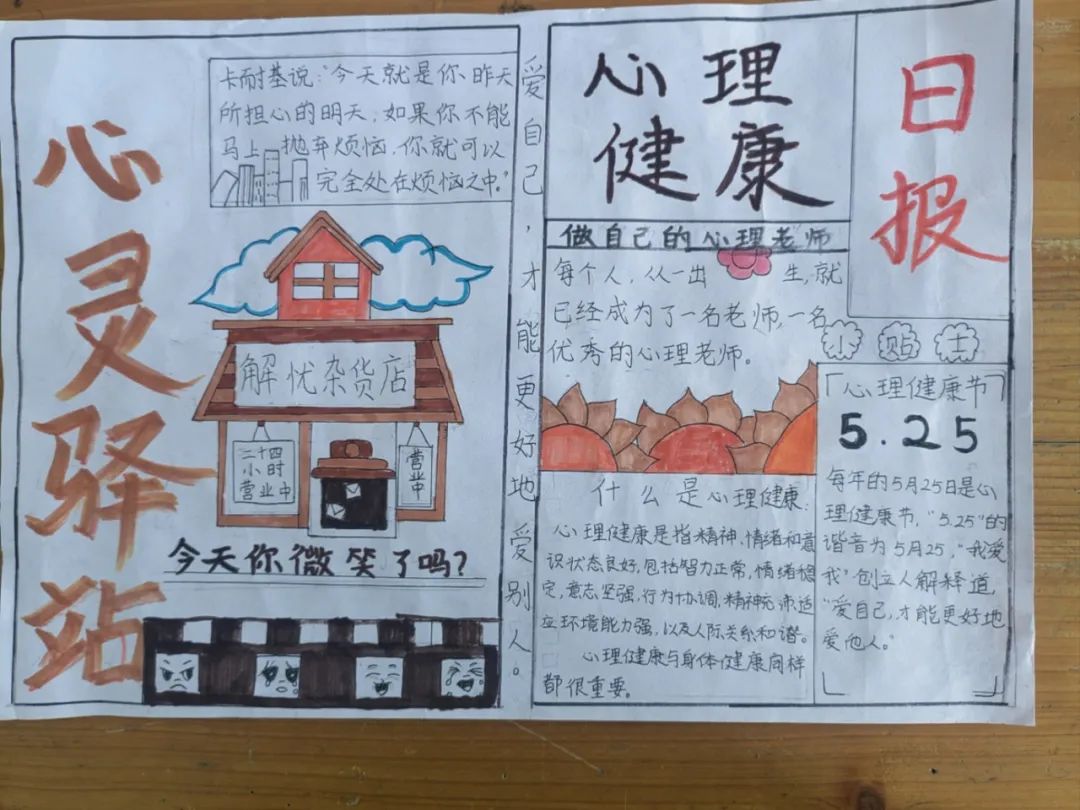 心灵驿站
卡耐基说:"今天就是你昨天
所担心的明天;如果你不能
马上抛弃烦恼,你就可以
完全处在烦恼之中。"
解忧杂货店
二十四
小时
营业中
营业中
今天你微笑了吗?
爱自己,才能更好地爱别人。
心理
健康
日报
做自己的心理老师
每个人,从一出生,就
已经成为了一名老师,一名
优秀的心理老师。
什么是心理健康:
心理健康是指精神、情绪和意
识状态良好,包括智力正常,情绪稳
定,意志坚强,行为协调,精神充沛,适
应环境能力强,以及人际关系和谐。
心理健康与身体健康同样
都很重要。
小贴士
「心理健康节」
5.25
每年的5月25日是心
理健康节,"5.25"的
谐音为5月25,"我爱
我"创立人解释道,
"爱自己,才能更好地
爱他人。"